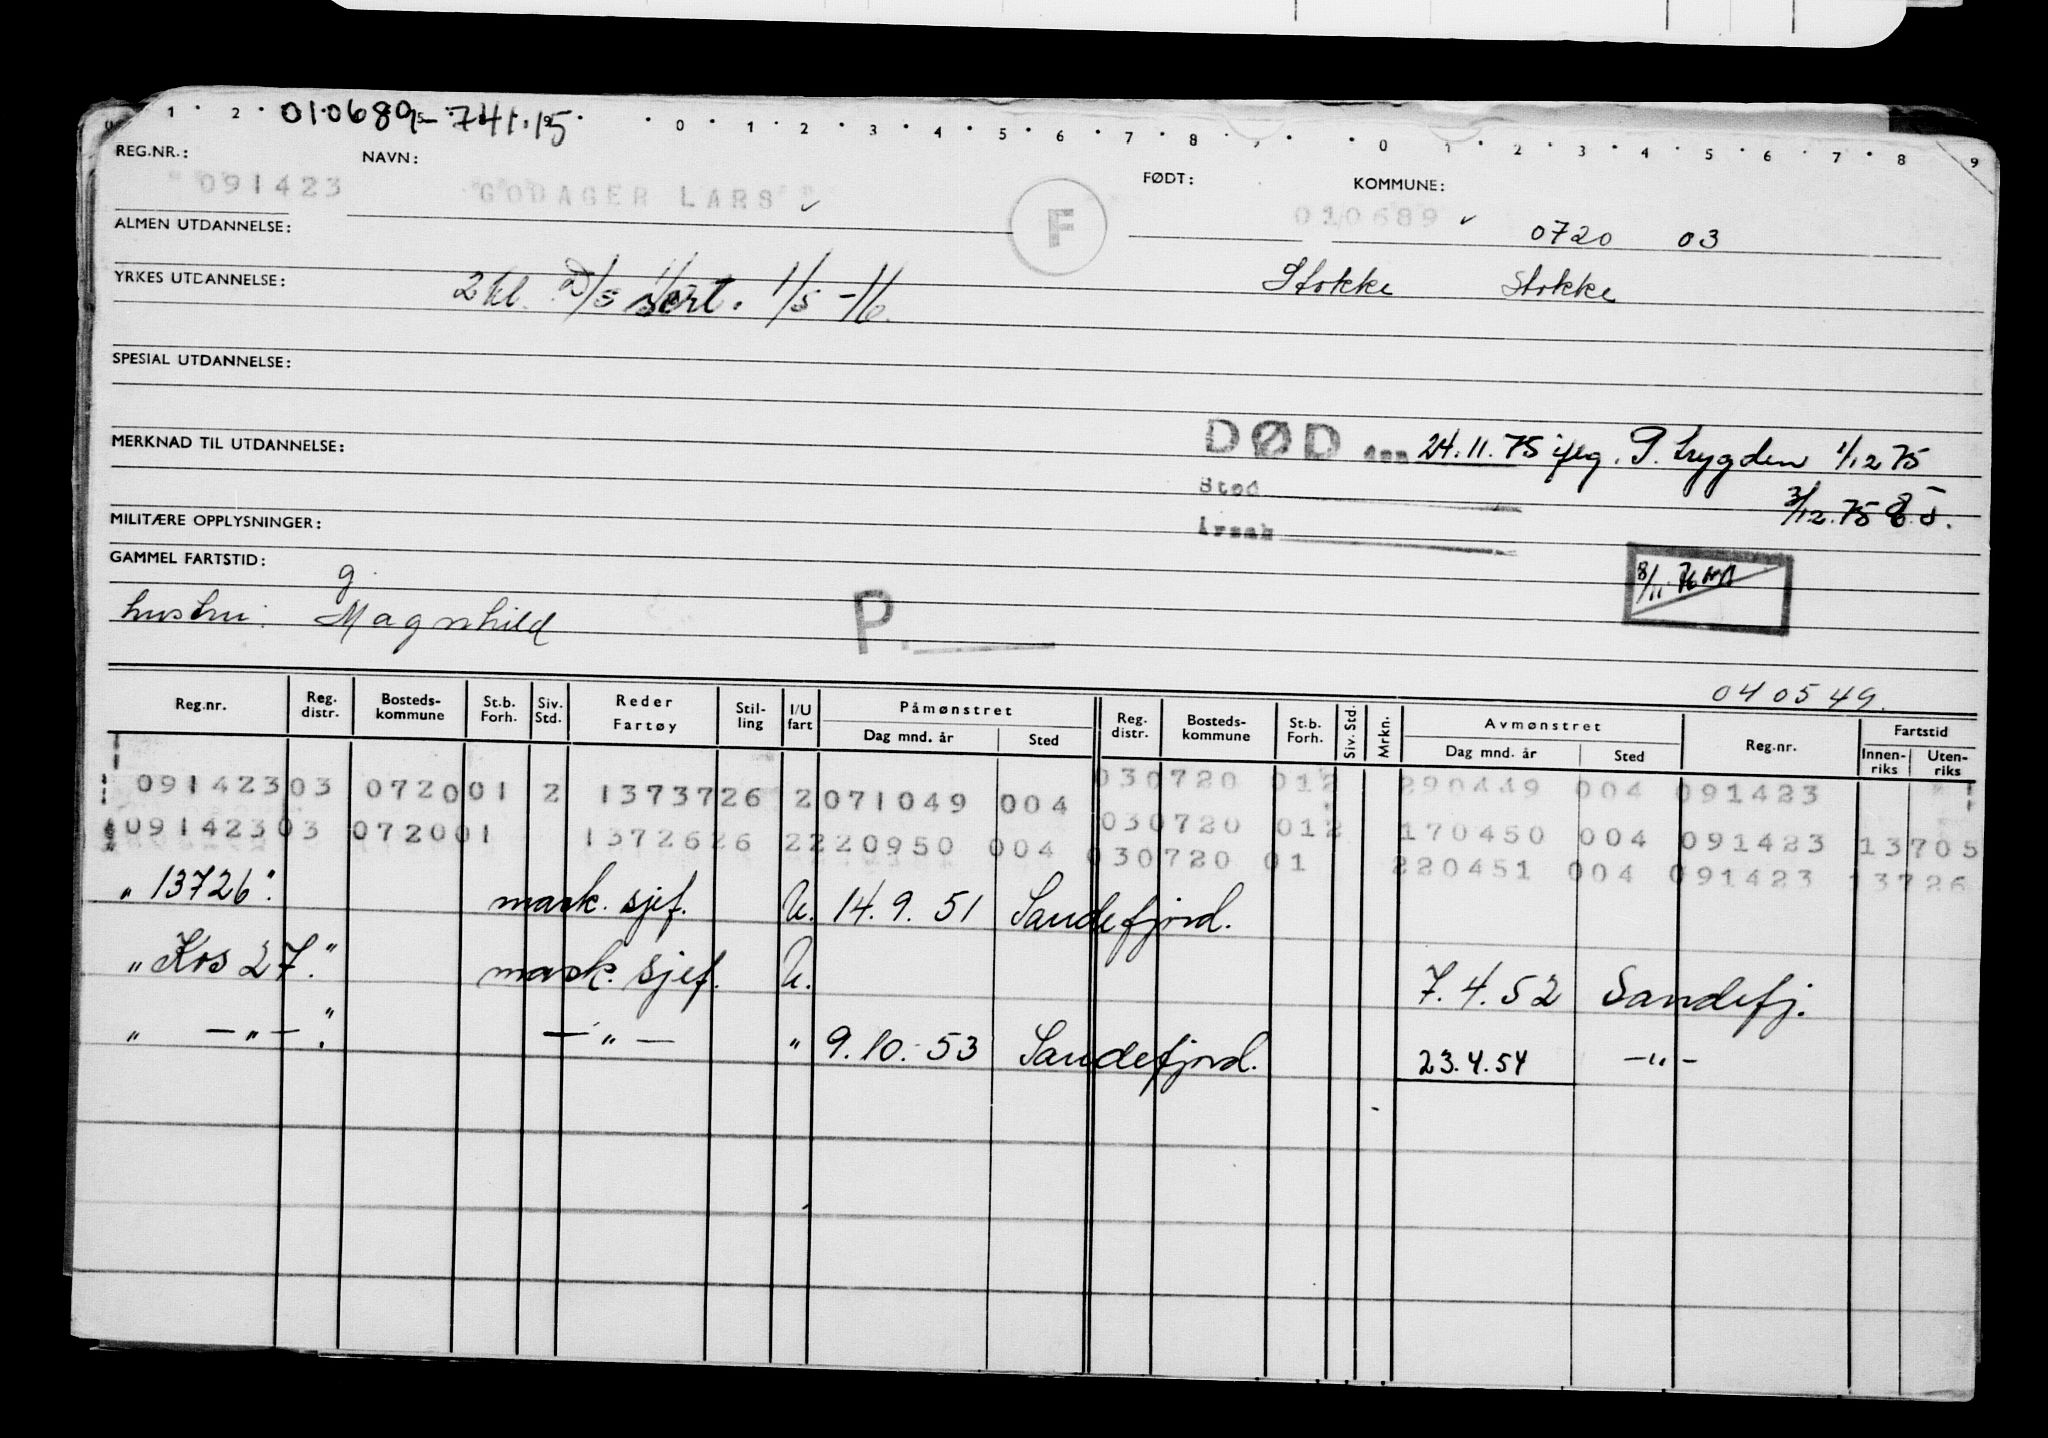 0 1 2 010689 - 741.15 0 1 2 3 4 5 6 7 8 0 1 2 3 4 5 6 7 8 9
REG.NR.: NAVN: FØDT: KOMMUNE:
091423 GODAGER LARS F 010689 0720 03
ALMEN UTDANNELSE:
YRKES UTDANNELSE: 2 kl. D/S sert. 1/5 -16. Stokke Stokke
SPESIAL UTDANNELSE:
MERKNAD TIL UTDANNELSE: DØD den 24.11.75 iflg. P. trygden 1/12 75
Sted 3/12.75
MILITÆRE OPPLYSNINGER: Årsak
GAMMEL FARTSTID: g. 8/11 76
hustru: Magnhild P.
040549.
Reg.nr. Reg. distr. Bosteds-kommune St.b. Forh. Siv. Std. Reder Fartøy Stil-ling I/U fart Påmønstret Dag mnd. år Sted Reg. distr. Bosteds-kommune St.b. Forh. Siv. Std. Mrkn. Avmønstret Dag mnd. år Sted Reg.nr. Fartstid Innen-riks Uten-riks
09142303 072001 2 1373726 2071049 004 030720 012 290449 004 091423
09142303 072001 1372626 2220950 004 030720 012 170450 004 091423 13705
030720 01 220451 004 091423 13726
"13726". mask. sjef. U. 14.9.51 Sandefjord.
"Kos 27." mask. sjef. U. 7.4.52 Sandefj.
" — " — ". — " — " 9.10.53 Sandefjord. 23.4.54 — " —